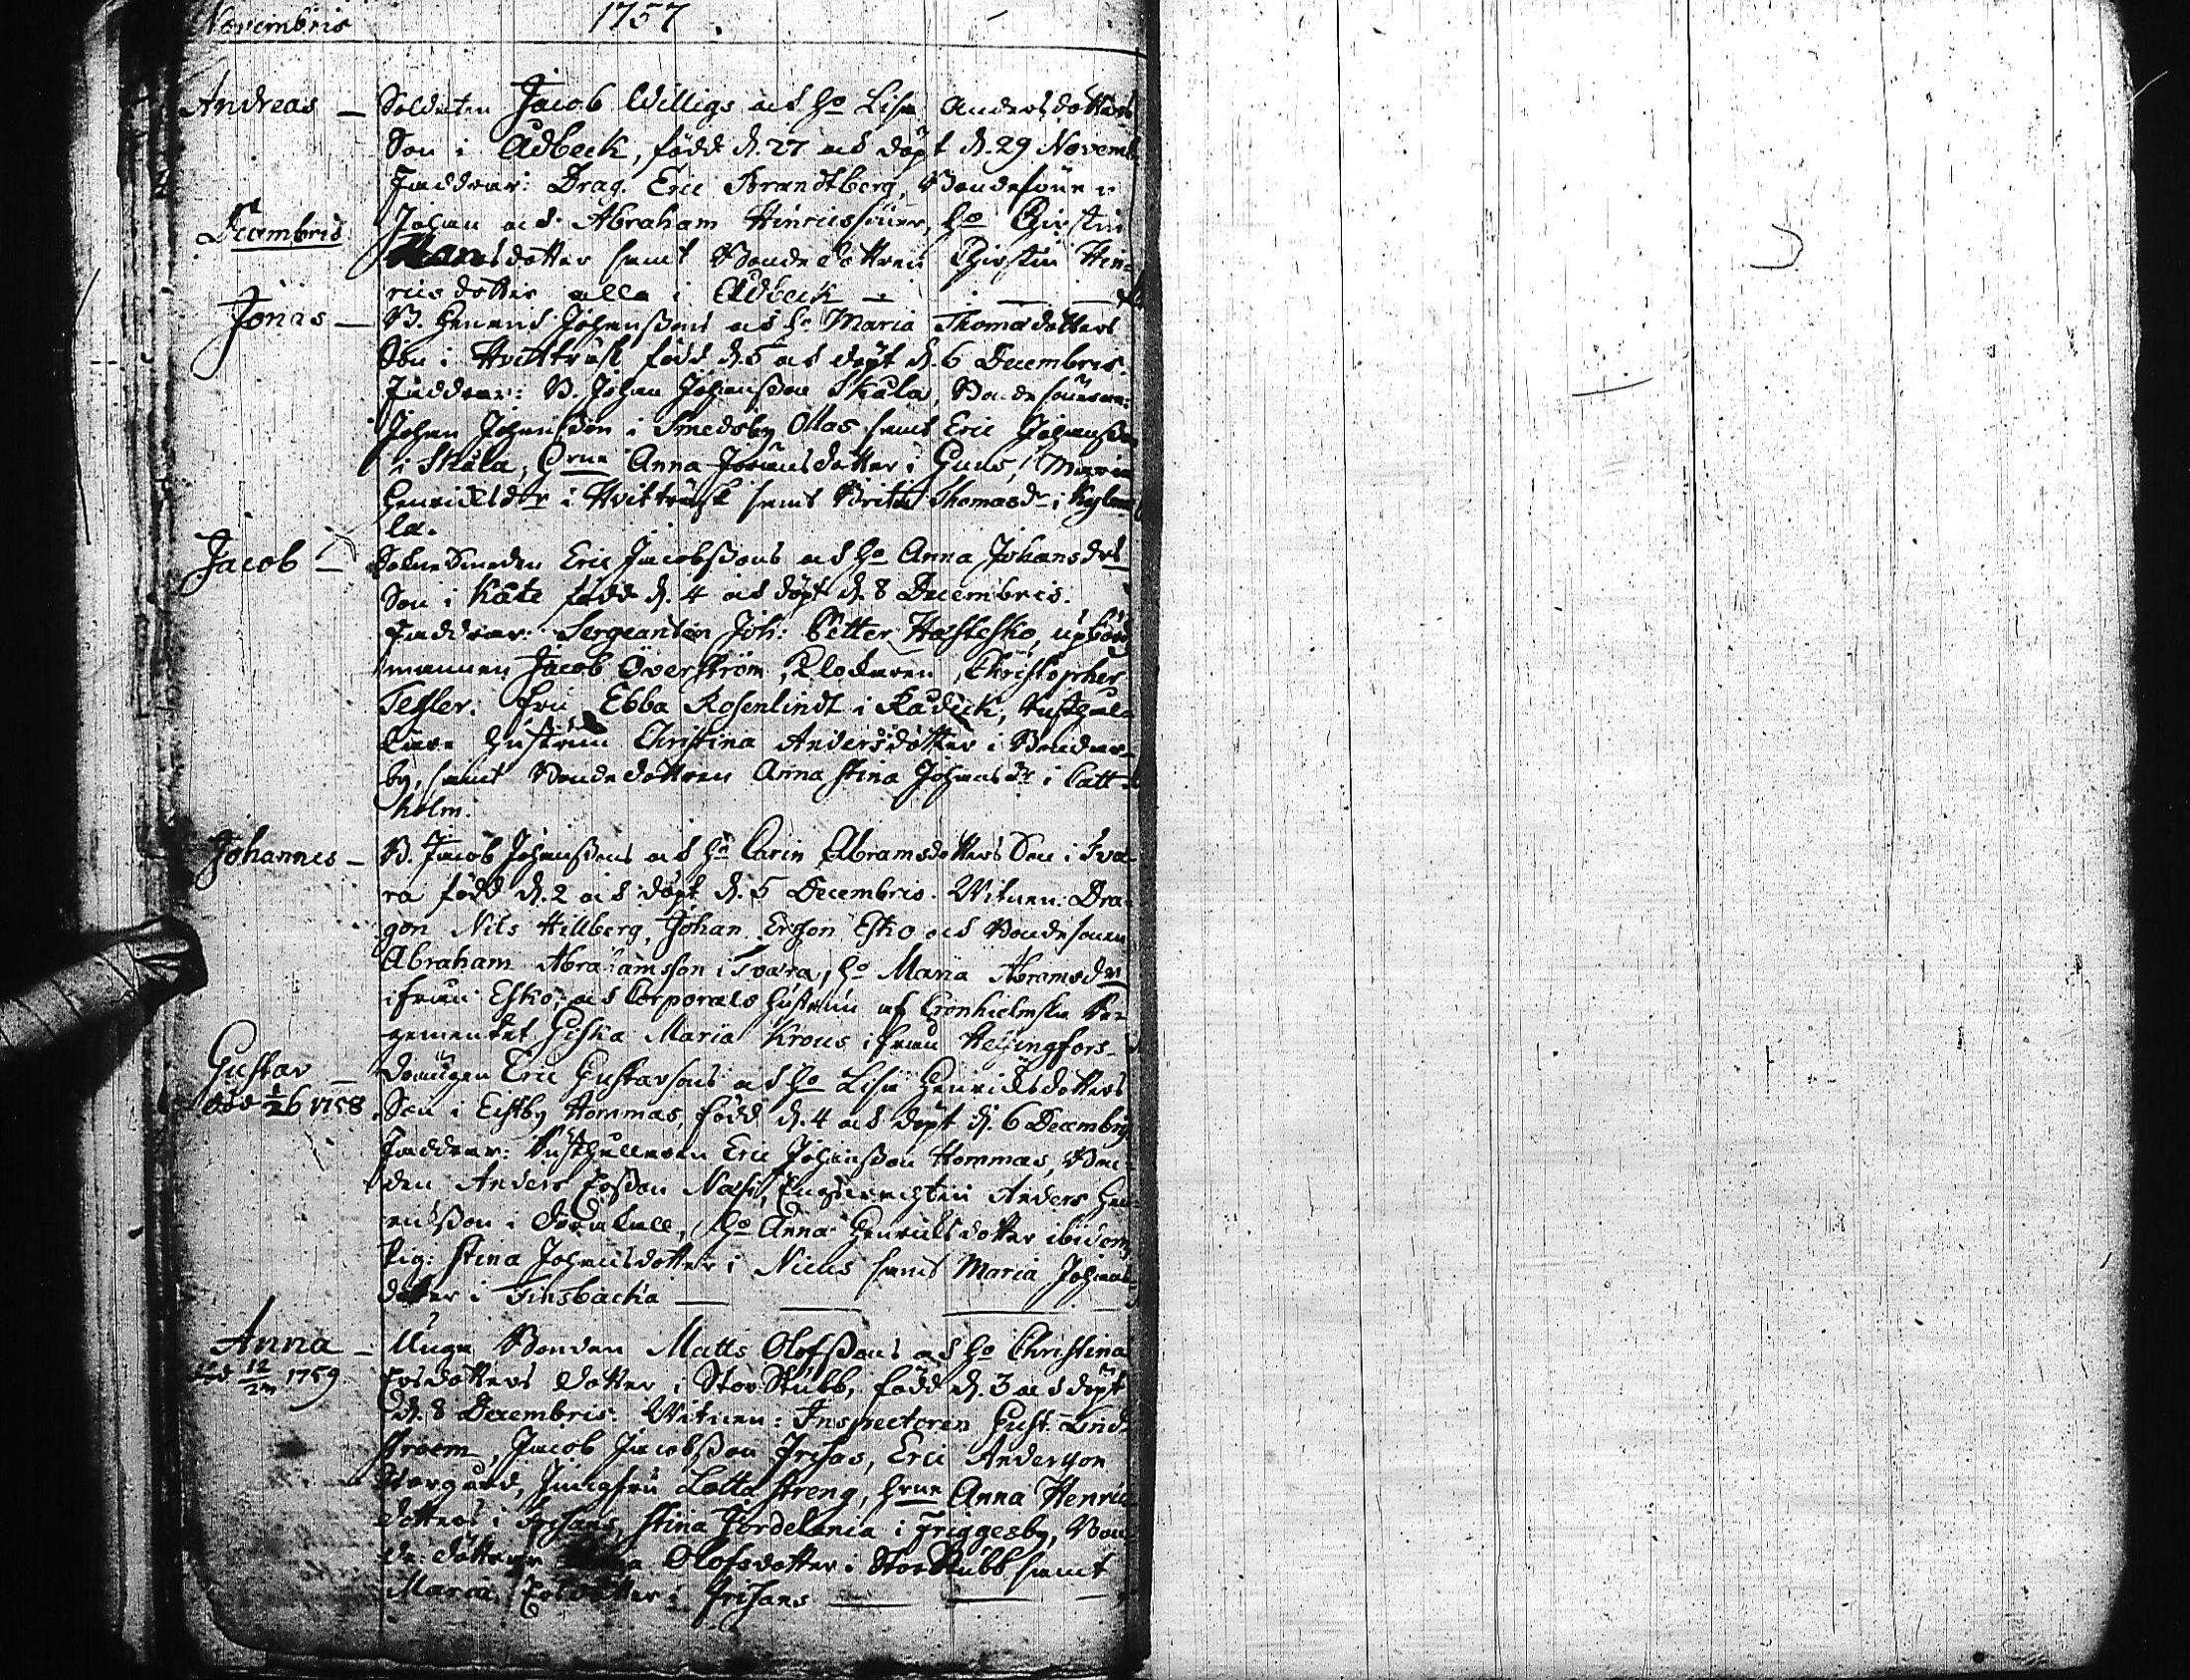 Novembris 1757.
Andreas — Soldaten Jacob Willigs och ho Lisa Andersdotters
Son i Adbeck, född d. 27 och döpt d. 29 Novemb
Faddrar: Drag. Eric Brandtberg, Bondesöner
Johan och Abraham Hinricssöner, ho Christin
Decembris
dotter samt Bondedottren Christin Hin=
ricsdotter alla i Adbeck —
Jonas — B. Henrich Johanssons och ho Maria Thomædotters
Son i Hvitträsk född d. 5 och döpt d. 6 Decembris.
Faddrar: B. Johan Johansson Skåla, Bondesönerne:
Johan Johansson i Smedsby Ollas samt Eric Johansson
i Skåla, Hrne Anna Joransdotter i Guns, Maria
Henricsdr i Hvitträsk samt Brita Thomasdr i Kylmä
la.
Jacob — Sockne Smeden Eric Jacobssons och ho Anna Johansdrs
Son i Kåte född d. 4 och döpt d. 8 Decembris.
Faddrar: Sergeanten Joh: Petter Hæstesko, upbörds
mannen Jacob Öwerström, Klockaren Christopher
Tessler. Fru Ebba Rosenlindt i Kadeck, Rusthålla
rens hustru Christina Andersdotter i Bonders=
by, samt Bondedottren Anna Stina Johansdr i Catt=
holm.
Johannes — B. Jacob Johanssons och ho Carin Abramsdotters Son i Sva
ra född d. 2 och döpt d. 5 Decembris. Witnen: Dra
gon Nils Hillberg, Johan Ersson Esko och Bondesonen
Abraham Abrahamsson i Svara, ho Maria Abramsdr
ifrån Esko, och Corporals hustrun af Cronhielmska Re=
gementet Giska Maria Krous ifrån Helsingfors.
Gustav — Drängen Eric Gustavsons och ho Lisa Henricsdotters
död 1/26 1758 Son i Eistby Hommas, född d. 4 och döpt d. 6 Decembris
Faddrar: Rusthållaren Eric Johansson Hommas, Bon=
den Anders Ersson Nässi, Anders Hen
ricsson i ho Anna Henricsdotter ibidem
Pig: Stina Johansdotter i Nicus samt Maria Johans=
dotter i Finsbacka —
Anna — Unga Bonden Matts Olofssons och ho Christina
död 12/2 1759 Ersdotters Dotter i StorStubb, född d. 3 och döpt
d. 8 Decembris. Witnen: Inspectoren Gust. Lind=
stroem, Jacob Jacobsson Frisas, Eric Andersson
Jungfru Lotta Streng, Hrne Anna Henrics
dotters i Frisans, Stina Jordelania i Friggesby, Bon
de döttrar Olofsdotter i StorStubb samt
Maria Ersdotter i Frisans —